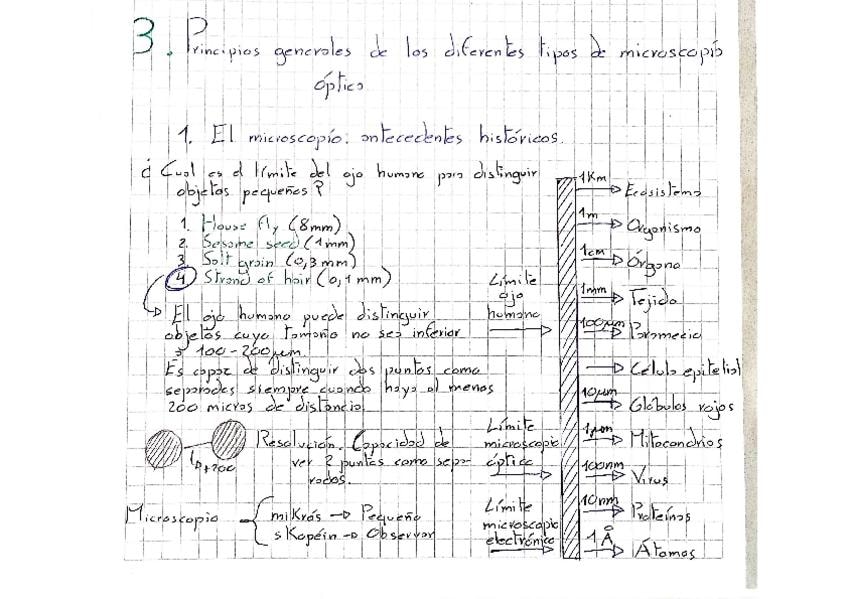 3. Principios generales de los diferentes tipos de microscopio
óptico
1. El microscopio: antecedentes históricos.
¿Cual es el límite del ojo humano para distinguir
objetos pequeños?
1. House fly (8mm)
2. Sesame seed (1mm)
3 Salt grain (0,3mm)
4 Strand of hair (0,1mm)
El ojo humano puede distinguir
objetos cuyo tamaño no sea inferior
a 100-200µm.
Es capaz de distinguir dos puntos como
separados siempre cuando haya al menos
200 micras de distancia.
+200
Resolución. Capacidad de
ver 2 puntos como sepa-
rados.
Microscopio
mikrós → Pequeño
skopéin → Observar
Límite
ojo
humano
Límite
microscopio
óptico
Límite
microscopio
electrónico
1Km Ecosistema
1m Organismo
1cm Órgano
1mm Tejido
100µm Paramecio
Célula epitelial
10µm Glóbulos rojos
1µm Mitocondrias
100nm Virus
10nm Proteínas
1Å Átomos